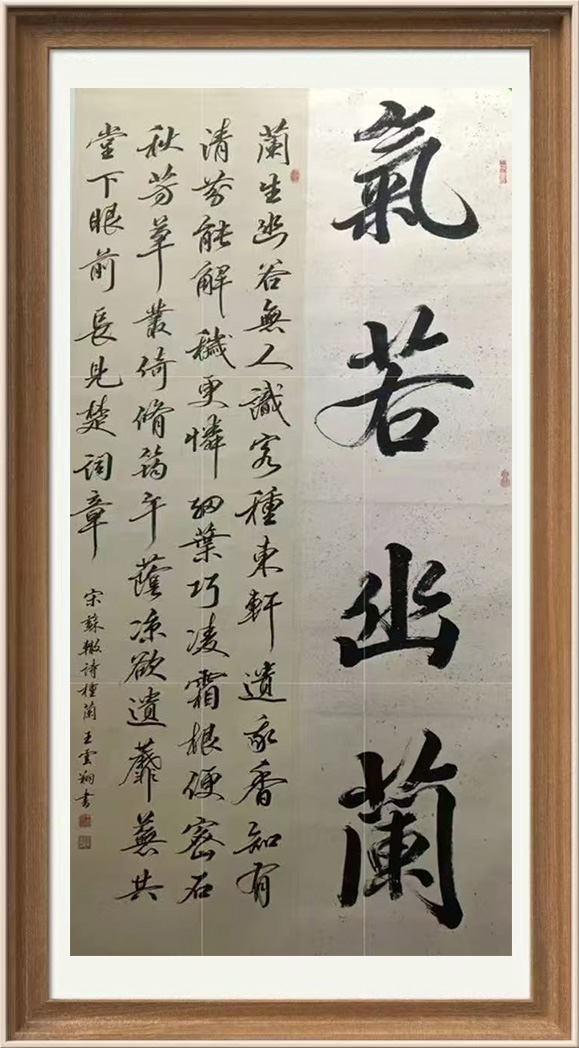 氣若幽蘭
蘭生幽谷無人識客種東軒遺我香知有
清芬能解穢更憐細葉巧凌霜根便密石
秋芳草叢倚脩筠午蔭凉欲遺蘼蕪共
堂下眼前長見楚詞章
宋蘇轍詩種蘭王雲翔書